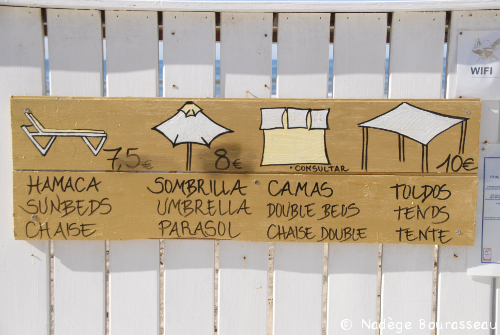 WIFI
7,5€
8€
• CONSULTAR
10€
HAMACA
SUNBEDS
CHAISE
SOMBRILLA
UMBRELLA
PARASOL
CAMAS
DOUBLE BEDS
CHAISE DOUBLE
TOLDOS
TENDS
TENTE
© Nadège Bourasseau